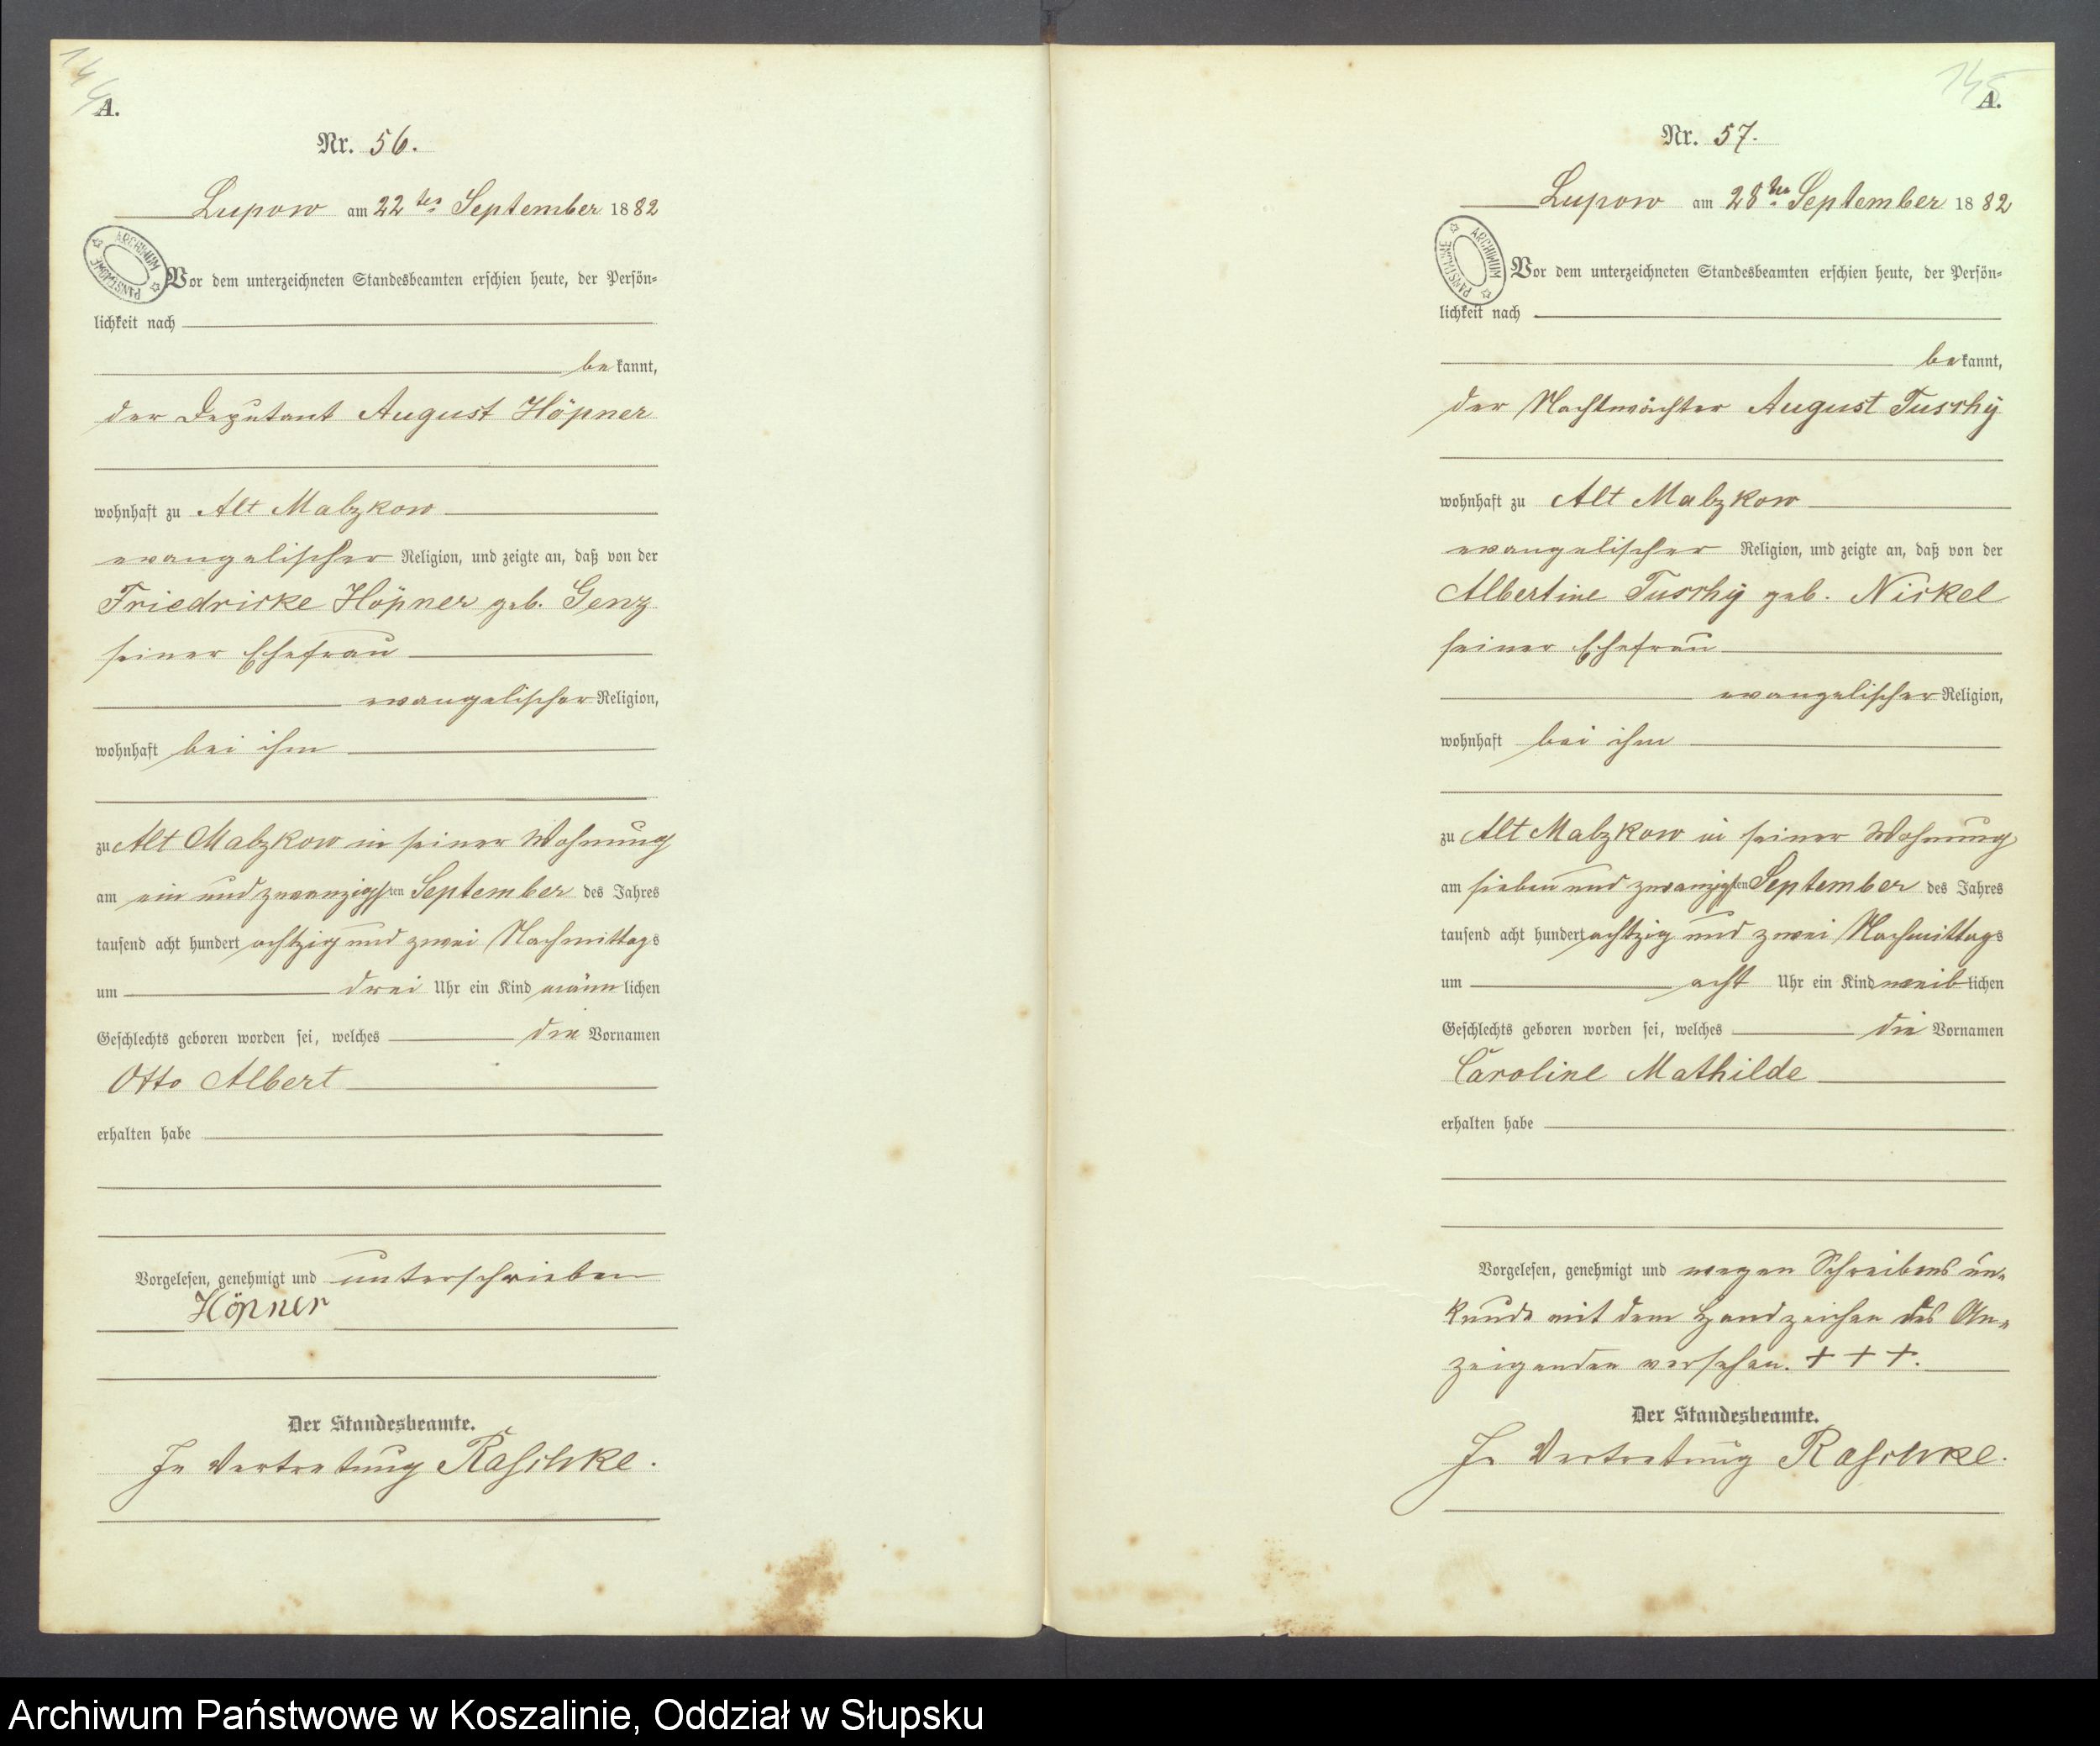 144
A.
Nr. 56.
Lupow am 22ten September 1882
ARCHIWUM PAŃSTWOWE
Vor dem unterzeichneten Standesbeamten erschien heute, der Persön=
lichkeit nach
bekannt,
der Deputant August Höpner
wohnhaft zu Alt Malzkow
evangelischer Religion, und zeigte an, daß von der
Friedricke Höpner geb. Genz
seiner Ehefrau
evangelischer Religion,
wohnhaft bei ihm
zu Alt Malzkow in seiner Wohnung
am ein und zwanzigsten September des Jahres
tausend acht hundert achtzig und zwei Nachmittags
um drei Uhr ein Kind männlichen
Geschlechts geboren worden sei, welches die Vornamen
Otto Albert
erhalten habe
Vorgelesen, genehmigt und unterschrieben
Höpner
Der Standesbeamte.
In Vertretung Raschke.
145
A.
Nr. 57.
Lupow am 28ten September 1882
ARCHIWUM PAŃSTWOWE
Vor dem unterzeichneten Standesbeamten erschien heute, der Persön=
lichkeit nach
bekannt,
der Nachtwächter August Tuschy
wohnhaft zu Alt Malzkow
evangelischer Religion, und zeigte an, daß von der
Albertine Tuschy geb. Nickel
seiner Ehefrau
evangelischer Religion,
wohnhaft bei ihm
zu Alt Malzkow in seiner Wohnung
am sieben und zwanzigsten September des Jahres
tausend acht hundert achtzig und zwei Nachmittags
um acht Uhr ein Kind weiblichen
Geschlechts geboren worden sei, welches die Vornamen
Caroline Mathilde
erhalten habe
Vorgelesen, genehmigt und wegen Schreibensun=
kunde mit dem Handzeichen des An=
zeigenden versehen. + + +.
Der Standesbeamte.
In Vertretung Raschke.
Archiwum Państwowe w Koszalinie, Oddział w Słupsku